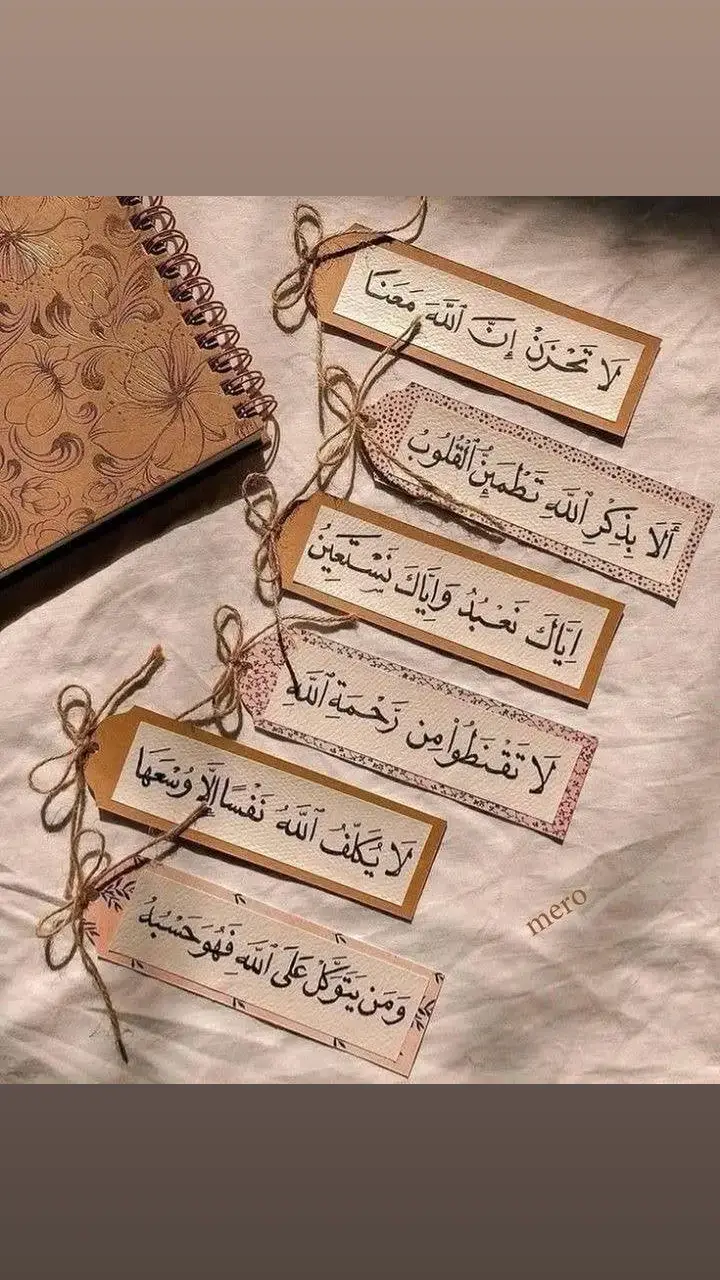 لَا تَحْزَنْ إِنَّ اللَّهَ مَعَنَا
أَلَا بِذِكْرِ اللَّهِ تَطْمَئِنُّ الْقُلُوبُ
اِيَّاكَ نَعْبُدُ وَاِيَّاكَ نَسْتَعِينُ
لَا تَقْنَطُوا مِن رَّحْمَةِ اللَّهِ
لَا يُكَلِّفُ اللَّهُ نَفْسًا إِلَّا وُسْعَهَا
وَمَن يَتَوَكَّلْ عَلَى اللَّهِ فَهُوَ حَسْبُهُ
mero